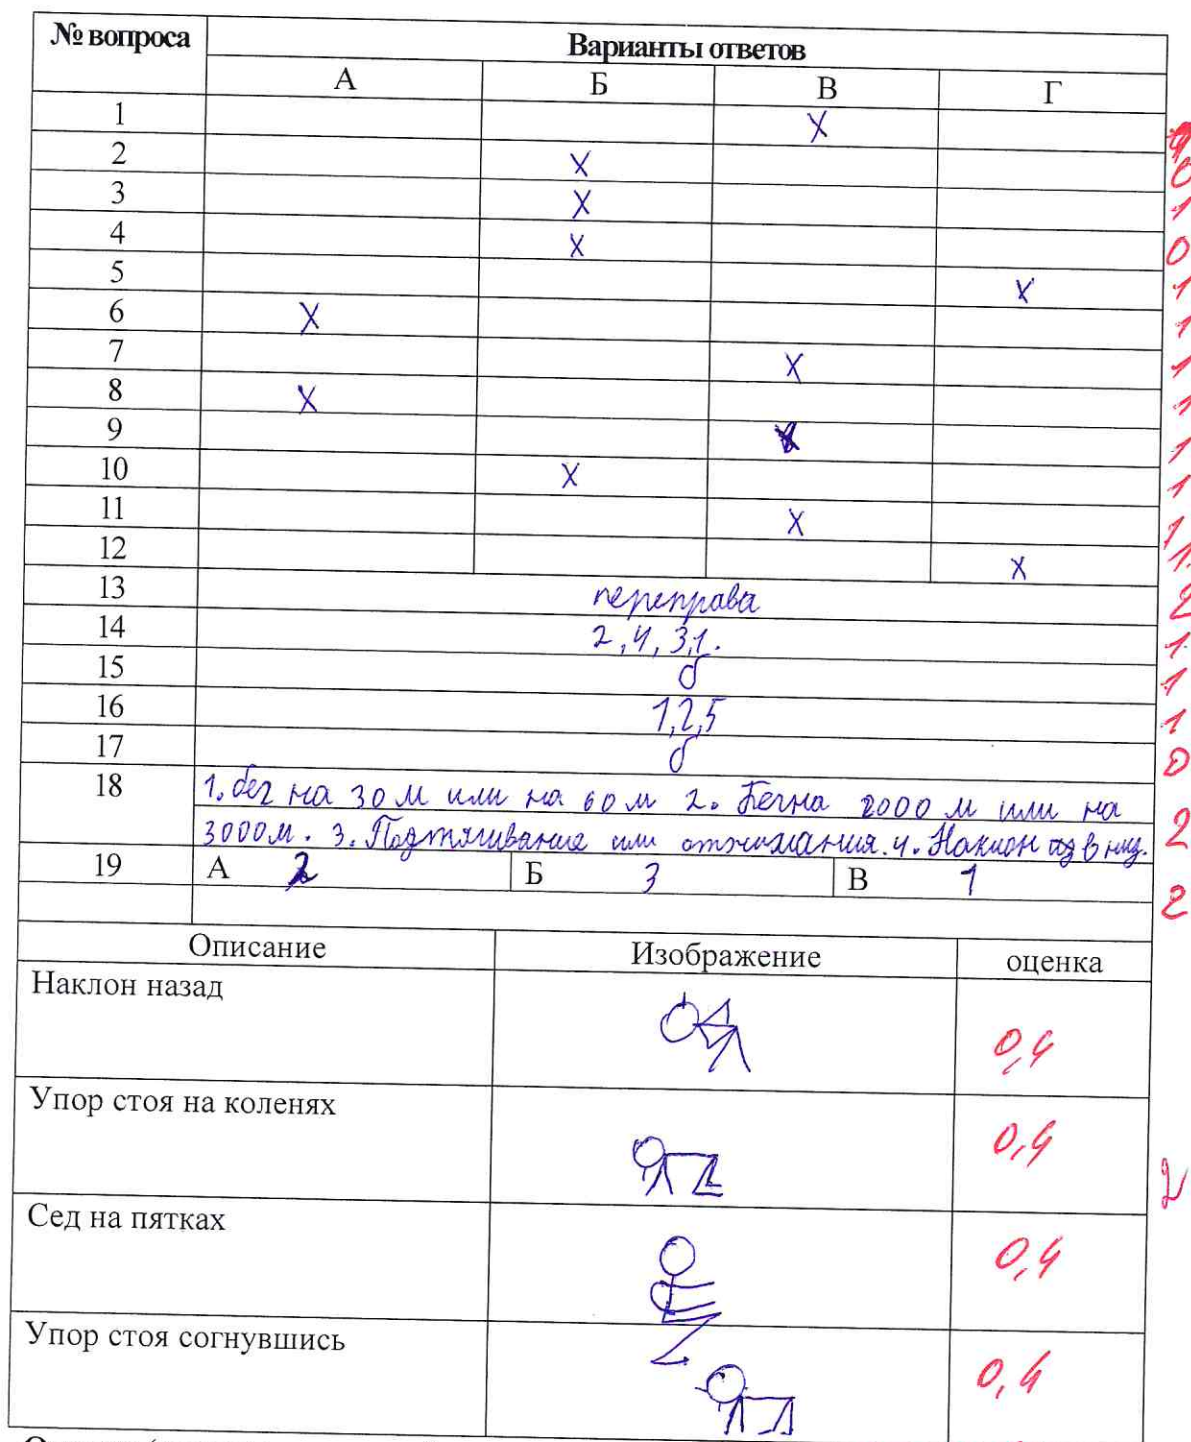 № вопроса Варианты ответов
А Б В Г
1 X
2 X 0
3 X 1
4 X 0
5 X 1
6 X 1
7 X 1
8 X 1
9 1
10 X 1
11 X 1
12 X 1
13 переправа 2
14 2,4,3,1. 1
15 б 1
16 1,2,5 1
17 б 0
18 1. бег на 30 м или на 60 м 2. Бег на 2000 м или на
3000м. 3. Подтягивание или отжимания. 4. Наклон 2
19 А 2 Б 3 В 1 2
Описание Изображение оценка
Наклон назад 0,4
Упор стоя на коленях 0,4
2
Сед на пятках 0,4
Упор стоя согнувшись 0,4